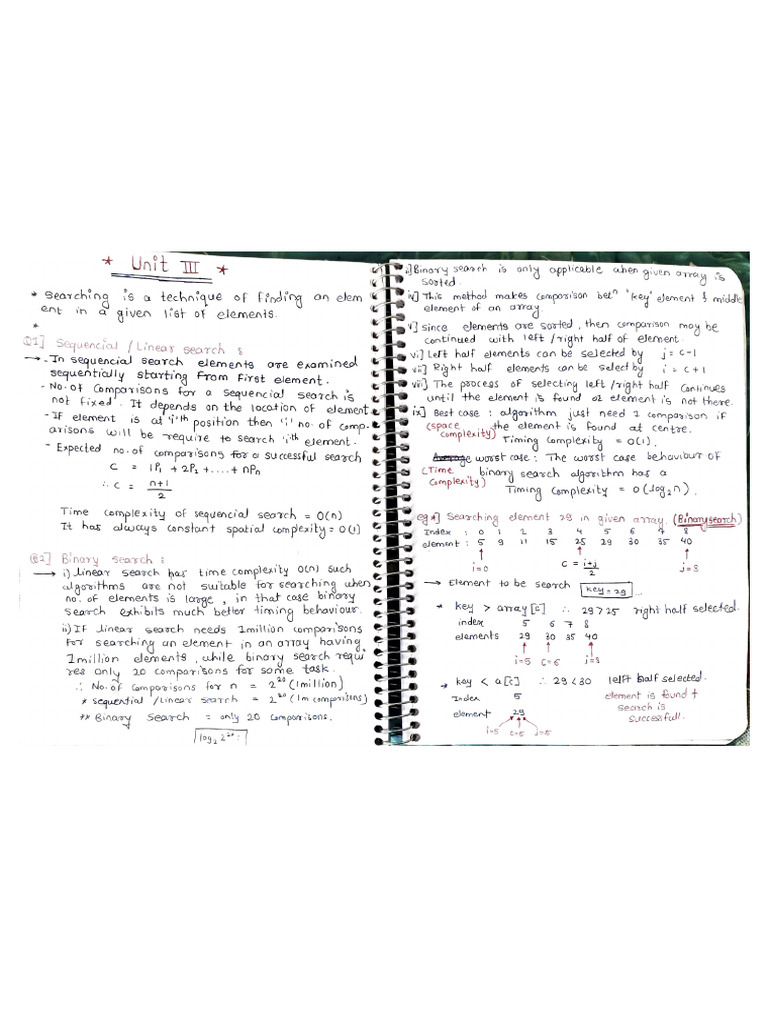 * Unit III *
* Searching is a technique of finding an elem
ent in a given list of elements.
*
Q1] Sequencial / Linear search :
→ - In sequencial search elements are examined
sequentially starting from first element.
- No. of comparisons for a sequencial search is
not fixed. It depends on the location of element
- If element is at 'i'th position then 'i' no. of comp-
arisons will be require to search 'i'th element.
- Expected no. of comparisons for a successful search
C = 1P1 + 2P2 + .... + nPn
∴ C = n+1
2
Time complexity of sequencial search = O(n)
It has always constant spatial complexity = O(1)
Q2] Binary search :
→ i) linear search has time complexity O(n) such
algorithms are not suitable for searching when
no. of elements is large, in that case binary
search exhibits much better timing behaviour.
ii) If linear search needs 1 million comparisons
for searching an element in an array having
1 million elements, while binary search requi
res only 20 comparisons for same task.
∴ No. of comparisons for n = 2^20 (1 million)
* sequential / Linear search = 2^20 (1m comparisons)
** Binary search = only 20 comparisons.
log2 2^20 :
i] Binary search is only applicable when given array is
sorted.
iv] This method makes comparison betn "key" element & middle
element of an array.
v] since elements are sorted, then comparison may be
continued with left / right half of element.
vi] Left half elements can be selected by j = c-1
vii] Right half elements can be select by i = c+1
viii] The process of selecting left / right half continues
until the element is found or element is not there.
ix] Best case : algorithm just need 1 comparison if
(space complexity) the element is found at centre.
Timing complexity = O(1).
Average worst case : The worst case behaviour of
(Time complexity) binary search algorithm has a
Timing complexity = O(log2 n).
eg*] Searching element 29 in given array. (Binary search)
Index : 0 1 2 3 4 5 6 7 8
element : 5 9 11 15 25 29 30 35 40
i=0 c = i+j/2 j=8
→ Element to be search key = 29 ...
* key > array[c] ∴ 29 > 25 right half selected.
index 5 6 7 8
elements 29 30 35 40
i=5 c=6 j=8
→ key < a[c] ∴ 29 < 30 left half selected.
Index 5 element is found &
element 29 search is
successfull.
i=5 c=5 j=5